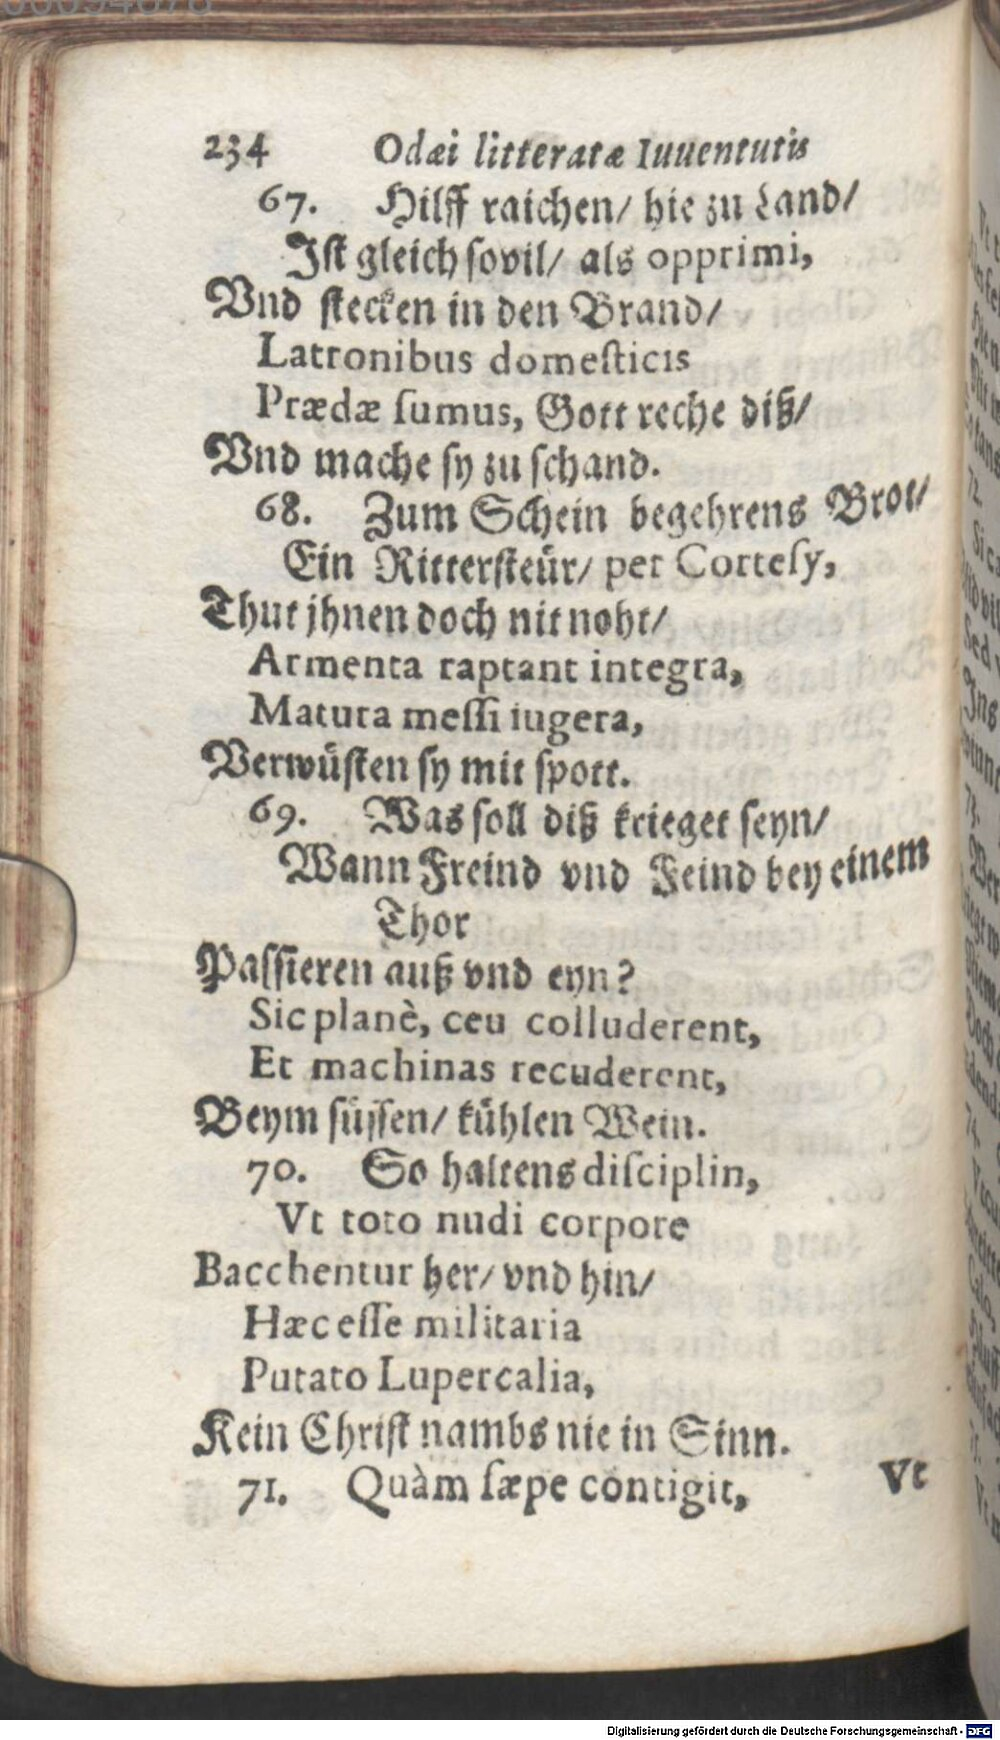 234 Odæi litteratæ Iuuentutis
67. Hilff raichen/ hie zu Land/
Ist gleich sovil/ als opprimi,
Vnd stecken in den Brand/
Latronibus domeſticis
Prædæ ſumus, Gott reche diß/
Vnd mache sy zu schand.
68. Zum Schein begehrens Brot/
Ein Rittersteür/ per Corteſy,
Thut jhnen doch nit noht/
Armenta raptant integra,
Matura meſſi iugera,
Verwüsten sy mit spott.
69. Was soll diß krieget seyn/
Wann Freind vnd Feind bey einem
Thor
Passieren auß vnd eyn?
Sic planè, ceu colluderent,
Et machinas recuderent,
Beym süssen/ kühlen Wein.
70. So haltens diſciplin,
Vt toto nudi corpore
Bacchentur her/ vnd hin/
Hæc eſſe militaria
Putato Lupercalia,
Kein Christ nambs nie in Sinn.
71. Quàm ſæpe contigit,
Vt
Digitalisierung gefördert durch die Deutsche Forschungsgemeinschaft - DFG